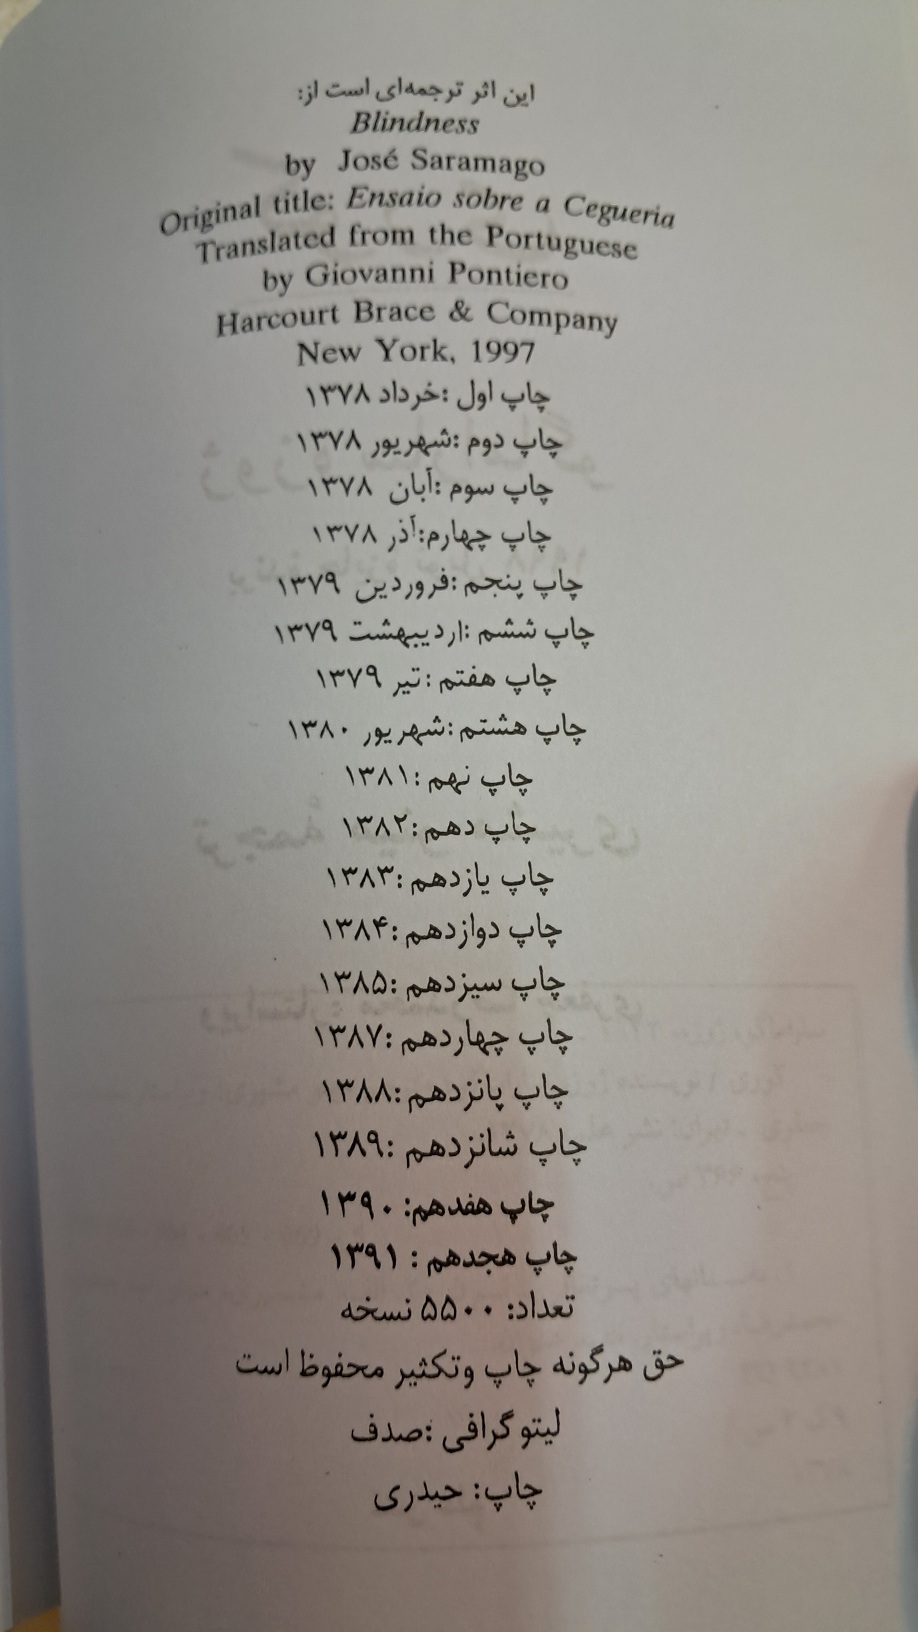 این اثر ترجمه‌ای است از:
Blindness
by José Saramago
Original title: Ensaio sobre a Cegueria
Translated from the Portuguese
by Giovanni Pontiero
Harcourt Brace & Company
New York, 1997
چاپ اول :خرداد ۱۳۷۸
چاپ دوم :شهریور ۱۳۷۸
چاپ سوم :آبان ۱۳۷۸
چاپ چهارم:آذر ۱۳۷۸
چاپ پنجم :فروردین ۱۳۷۹
چاپ ششم :اردیبهشت ۱۳۷۹
چاپ هفتم : تیر ۱۳۷۹
چاپ هشتم :شهریور ۱۳۸۰
چاپ نهم :۱۳۸۱
چاپ دهم :۱۳۸۲
چاپ یازدهم :۱۳۸۳
چاپ دوازدهم :۱۳۸۴
چاپ سیزدهم :۱۳۸۵
چاپ چهاردهم :۱۳۸۷
چاپ پانزدهم :۱۳۸۸
چاپ شانزدهم :۱۳۸۹
چاپ هفدهم: ۱۳۹۰
چاپ هجدهم : ۱۳۹۱
تعداد: ۵۵۰۰ نسخه
حق هرگونه چاپ وتکثیر محفوظ است
لیتوگرافی :صدف
چاپ: حیدری